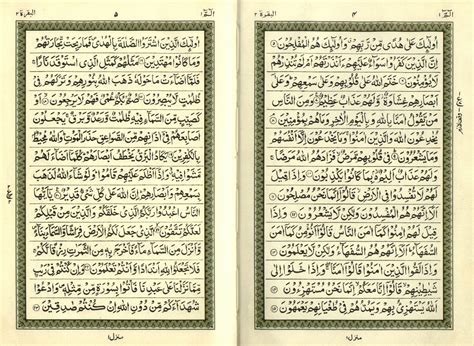 البقرة ٢
۴
الٓمّٓ ١
اُولٰٓئِكَ عَلٰى هُدًى مِّنْ رَّبِّهِمْ وَاُولٰٓئِكَ هُمُ الْمُفْلِحُوْنَ
اِنَّ الَّذِيْنَ كَفَرُوْا سَوَآءٌ عَلَيْهِمْ ءَاَنْذَرْتَهُمْ اَمْ لَمْ تُنْذِرْهُمْ
لَا يُؤْمِنُوْنَ خَتَمَ اللّٰهُ عَلٰى قُلُوْبِهِمْ وَعَلٰى سَمْعِهِمْ وَعَلٰٓى
اَبْصَارِهِمْ غِشَاوَةٌ وَّلَهُمْ عَذَابٌ عَظِيْمٌ وَمِنَ النَّاسِ
مَنْ يَّقُوْلُ اٰمَنَّا بِاللّٰهِ وَبِالْيَوْمِ الْاٰخِرِ وَمَا هُمْ بِمُؤْمِنِيْنَ
يُخٰدِعُوْنَ اللّٰهَ وَالَّذِيْنَ اٰمَنُوْا وَمَا يَخْدَعُوْنَ اِلَّآ اَنْفُسَهُمْ
وَمَا يَشْعُرُوْنَ فِيْ قُلُوْبِهِمْ مَّرَضٌ فَزَادَهُمُ اللّٰهُ مَرَضًا وَ
لَهُمْ عَذَابٌ اَلِيْمٌ بِمَا كَانُوْا يَكْذِبُوْنَ وَاِذَا قِيْلَ
لَهُمْ لَا تُفْسِدُوْا فِى الْاَرْضِ قَالُوْٓا اِنَّمَا نَحْنُ مُصْلِحُوْنَ
اَلَآ اِنَّهُمْ هُمُ الْمُفْسِدُوْنَ وَلٰكِنْ لَّا يَشْعُرُوْنَ وَاِذَا
قِيْلَ لَهُمْ اٰمِنُوْا كَمَآ اٰمَنَ النَّاسُ قَالُوْٓا اَنُؤْمِنُ كَمَآ اٰمَنَ
السُّفَهَآءُ اَلَآ اِنَّهُمْ هُمُ السُّفَهَآءُ وَلٰكِنْ لَّا يَعْلَمُوْنَ
وَاِذَا لَقُوا الَّذِيْنَ اٰمَنُوْا قَالُوْٓا اٰمَنَّا وَاِذَا خَلَوْا اِلٰى
شَيٰطِيْنِهِمْ قَالُوْٓا اِنَّا مَعَكُمْ اِنَّمَا نَحْنُ مُسْتَهْزِءُوْنَ
اَللّٰهُ يَسْتَهْزِئُ بِهِمْ وَيَمُدُّهُمْ فِيْ طُغْيَانِهِمْ يَعْمَهُوْنَ
منزل ١
البقرة ٢
۵
الٓمّٓ ١
اُولٰٓئِكَ الَّذِيْنَ اشْتَرَوُا الضَّلٰلَةَ بِالْهُدٰى فَمَا رَبِحَتْ تِّجَارَتُهُمْ
وَمَا كَانُوْا مُهْتَدِيْنَ مَثَلُهُمْ كَمَثَلِ الَّذِى اسْتَوْقَدَ نَارًا
فَلَمَّآ اَضَآءَتْ مَا حَوْلَهٗ ذَهَبَ اللّٰهُ بِنُوْرِهِمْ وَتَرَكَهُمْ فِيْ
ظُلُمٰتٍ لَّا يُبْصِرُوْنَ صُمٌّۢ بُكْمٌ عُمْيٌ فَهُمْ لَا يَرْجِعُوْنَ اَوْ
كَصَيِّبٍ مِّنَ السَّمَآءِ فِيْهِ ظُلُمٰتٌ وَّرَعْدٌ وَّبَرْقٌ يَجْعَلُوْنَ
اَصَابِعَهُمْ فِيْٓ اٰذَانِهِمْ مِّنَ الصَّوَاعِقِ حَذَرَ الْمَوْتِ وَاللّٰهُ مُحِيْطٌۢ
بِالْكٰفِرِيْنَ يَكَادُ الْبَرْقُ يَخْطَفُ اَبْصَارَهُمْ كُلَّمَآ اَضَآءَ
لَهُمْ مَّشَوْا فِيْهِ وَاِذَآ اَظْلَمَ عَلَيْهِمْ قَامُوْا وَلَوْ شَآءَ اللّٰهُ لَذَهَبَ
بِسَمْعِهِمْ وَاَبْصَارِهِمْ اِنَّ اللّٰهَ عَلٰى كُلِّ شَيْءٍ قَدِيْرٌ يٰٓاَيُّهَا
النَّاسُ اعْبُدُوْا رَبَّكُمُ الَّذِيْ خَلَقَكُمْ وَالَّذِيْنَ مِنْ قَبْلِكُمْ
لَعَلَّكُمْ تَتَّقُوْنَ الَّذِيْ جَعَلَ لَكُمُ الْاَرْضَ فِرَاشًا وَّالسَّمَآءَ بِنَآءً
وَّاَنْزَلَ مِنَ السَّمَآءِ مَآءً فَاَخْرَجَ بِهٖ مِنَ الثَّمَرٰتِ رِزْقًا لَّكُمْ
فَلَا تَجْعَلُوْا لِلّٰهِ اَنْدَادًا وَّاَنْتُمْ تَعْلَمُوْنَ وَاِنْ كُنْتُمْ فِيْ رَيْبٍ
مِّمَّا نَزَّلْنَا عَلٰى عَبْدِنَا فَاْتُوْا بِسُوْرَةٍ مِّنْ مِّثْلِهٖ وَادْعُوْا
شُهَدَآءَكُمْ مِّنْ دُوْنِ اللّٰهِ اِنْ كُنْتُمْ صٰدِقِيْنَ
منزل ١